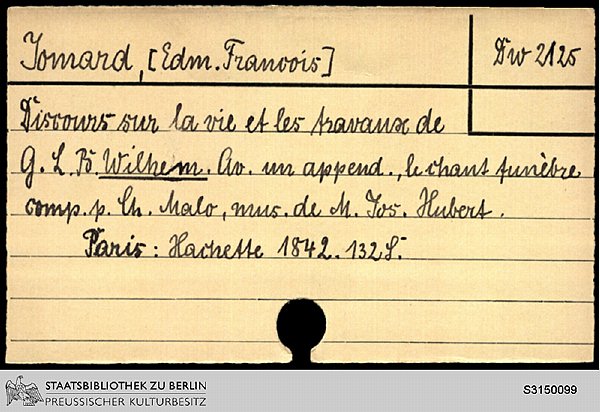 Jomard, [Edm. Francois]
Dw 2125
Discours sur la vie et les travaux de
G. L. B. Wilhem. Av. un append., le chant funèbre
comp. p. Ch. Malo, mus. de M. Jos. Hubert.
Paris: Hachette 1842. 132 S.
STAATSBIBLIOTHEK ZU BERLIN
PREUSSISCHER KULTURBESITZ
S3150099